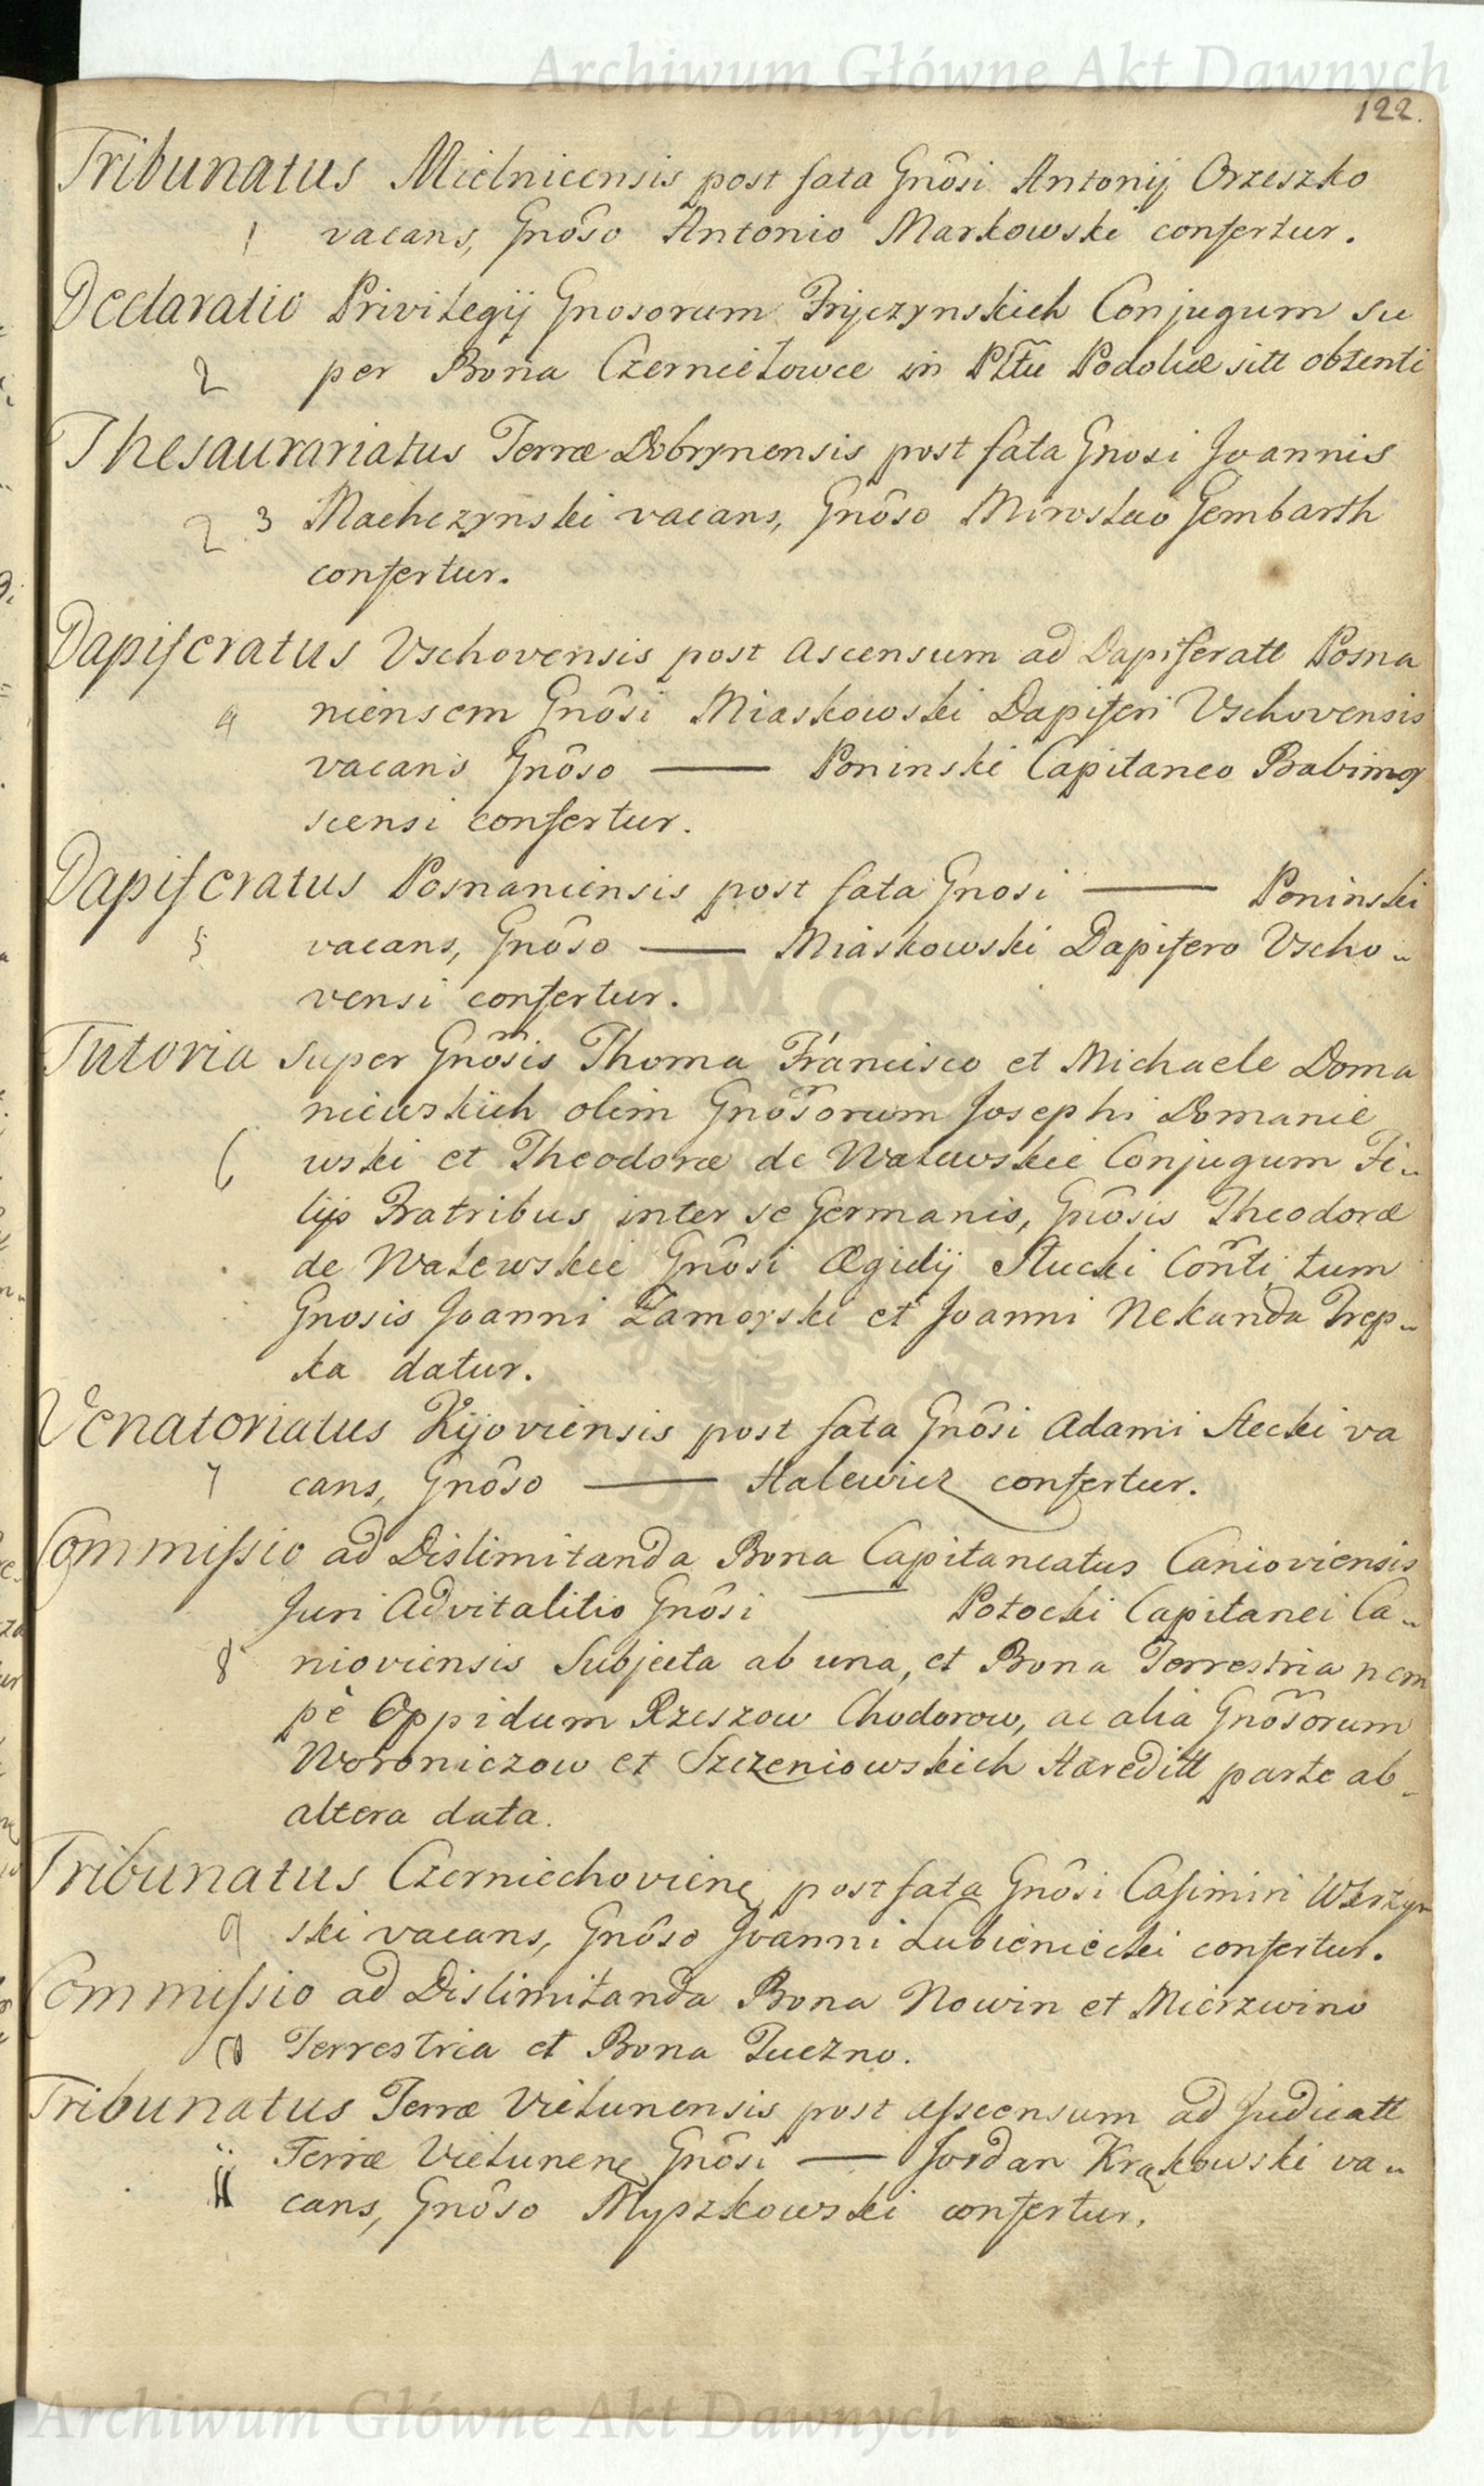 Archiwum Główne Akt Dawnych
122.
Tribunatus Mielnicensis post fata Gnôsi Antonij Orzeszko
1 vacans, Gnôso Antonio Markowski confertur.
Declaratio Privilegij Gnosorum Fryczynskich Conjugum su
2 per Bona Czernielowce in Pltu Podoliæ sitt obtenti
Thesaurariatus Terræ Dobrynensis post fata Gnosi Joannis
2 3 Machczynski vacans, Gnôso Miroslao Gembarth
confertur.
Dapiferatus Vschovensis post ascensum ad Dapiferatt Posna
4 niensem Gnôsi Miaskowski Dapiferi Vschovensis
vacans Gnôso —— Poninski Capitaneo Babimos
scensi confertur.
Dapiferatus Posnaniensis post fata Gnosi —— Poninski
5 vacans, Gnôso —— Miaskowski Dapifero Vscho„
vensi confertur.
Tutoria super Gnôsis Thoma Francisco et Michaele Doma
niewskich olim Gnôsorum Josephi Domanie
6 wski et Theodoræ de Walewskie Conjugum Fi„
lijs Fratribus inter se Germanis, Gnôsis Theodoræ
de Walewskie Gnôsi Ægidij Stucki Cônti tum
Gnosis Joanni Zamoyski et Joanni Nekanda Trep„
ka datur.
Venatoriatus Kijoviensis post fata Gnôsi Adami Stecki va
7 cans, Gnôso —— Halewicz confertur.
Commissio ad Dislimitanda Bona Capitaneatus Canioviensis
Juri Advitalitio Gnôsi —— Potocki Capitanei Ca„
8 nioviensis Subjecta ab una, et Bona Terrestria nem
pè Oppidum Rzeszow Chodorow, ac alia Gnôsorum
Woroniczow et Szczeniowskich Hæreditt parte ab„
altera data.
Tribunatus Czerniechoviene post fata Gnôsi Casimiri
9 ski vacans, Gnôso Joanni Lubieniecki confertur.
Commissio ad Dislimitanda Bona Nowin et Mierzwino
10 Terrestria et Bona Tuczno.
Tribunatus Terræ Vielunensis post assensum ad Judicatt
Terræ Vielunene Gnôsi —— Jordan Krąkowski va„
11 cans, Gnôso Myszkowski confertur.
Archiwum Główne Akt Dawnych